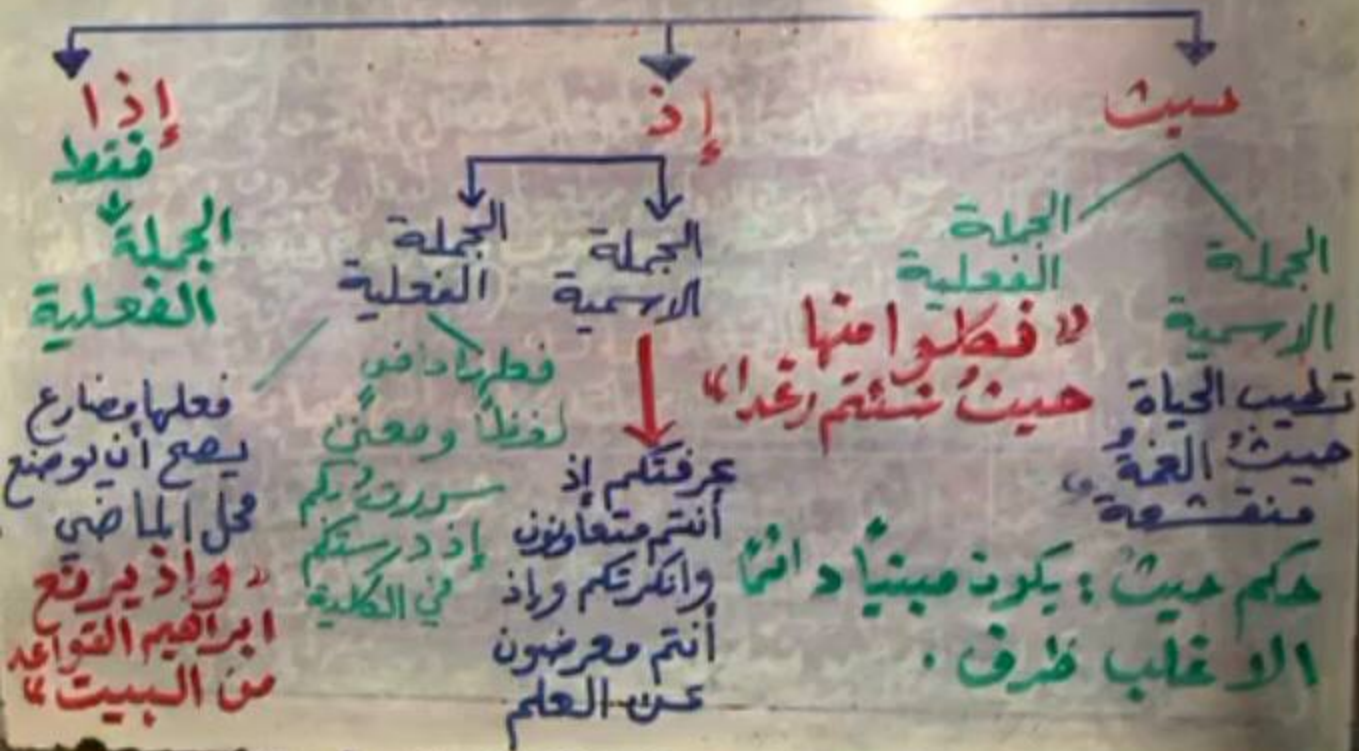 حيث
الجملة
الاسمية
تطيب الحياة
حيثُ الغمةُ
منقشعة
الجملة
الفعلية
« فكلوا منها
حيثُ شئتم رغدا »
حكم حيثُ : يكون مبنياً دائماً
الاغلب ظرف .
إذ
الجملة
الاسمية
عرفتكم إذ
أنتم متعاونون
وانكرتكم وإذ
أنتم معرضون
عن العلم
الجملة
الفعلية
فطرها ماضي
لفظاً ومعنىً
سررت
إذ درستكم
في الكلية
فعلها مضارع
يصح أن يوضع
محل الماضي
« وإذ يرفع
ابراهيم القواعد
من البيت »
إذا
فقط
الجملة
الفعلية